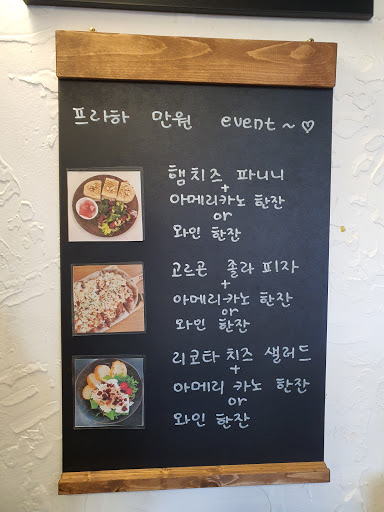 프라하 만원 event ~ ♡
햄치즈 파니니
+
아메리카노 한잔
or
와인 한잔
고르곤 졸라 피자
+
아메리카노 한잔
or
와인 한잔
리코타 치즈 샐러드
+
아메리카노 한잔
or
와인 한잔